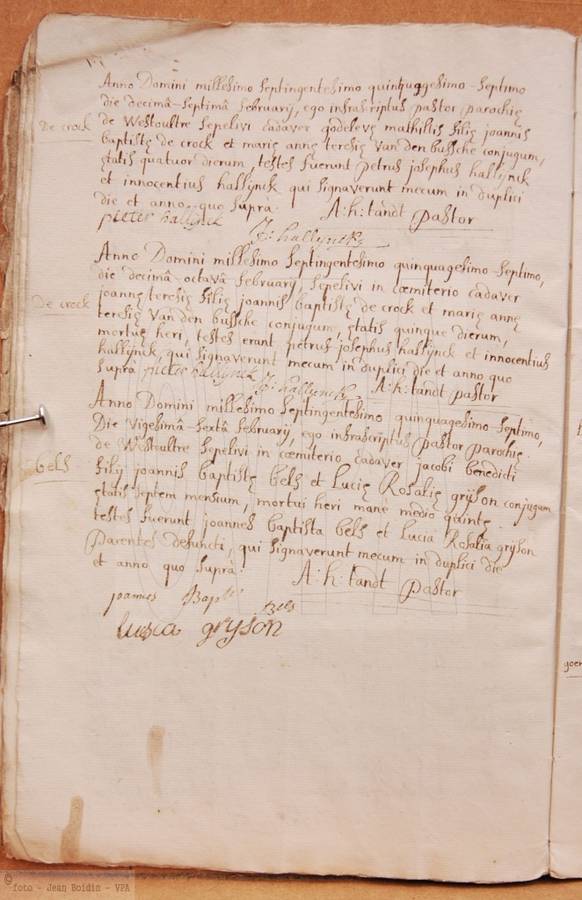 Anno Domini millesimo septingentesimo quinquagesimo-septimo
die decimâ-septimâ february, ego infrascriptus pastor parochię
De crock
de Westoultre sepelivi cadaver godelevę mathildis filię joannis
baptistę de crock et marię annę teresię Van den bussche conjugum,
ętatis quatuor dierum, testes fuerunt petrus josephus hallÿnck
et innocentius hallÿnck qui signaverunt mecum in duplici
die et anno quo suprà A:h:tandt pastor
pieter hallÿnck
J: hallynck
Anno Domini millesimo septingentesimo quinquagesimo-septimo,
die decimâ-octavâ february, sepelivi in cœmiterio cadaver
De crock
joannę teresię filię joannis baptistę de crock et marię annę
teresię Van den bussche conjugum, ętatis quinque dierum,
mortuę heri, testes erant petrus josephus hallÿnck et innocentius
hallÿnck, qui signaverunt mecum in duplici die et anno quo
suprà pieter hallÿnck J: hallynck A:h:tandt pastor
Anno Domini millesimo septingentesimo quinquagesimo-septimo,
Die vigesimâ-sextâ february, ego infrascriptus pastor parochię
bels
de Westoultre sepelivi in cœmiterio cadaver jacobi benedicti
filij joannis baptistę bels et Lucię Rosalię grijson conjugum
ętatis septem mensium, mortui heri mane medio quintę
testes fuerunt joannes baptista bels et Lucia Rosalia grijson
Parentes defuncti, qui signaverunt mecum in duplici die
et anno quo suprà: A:h:tandt pastor
joannes Bapt
Bels
lucia grijson
goen
© foto - Jean Boidin - VPA